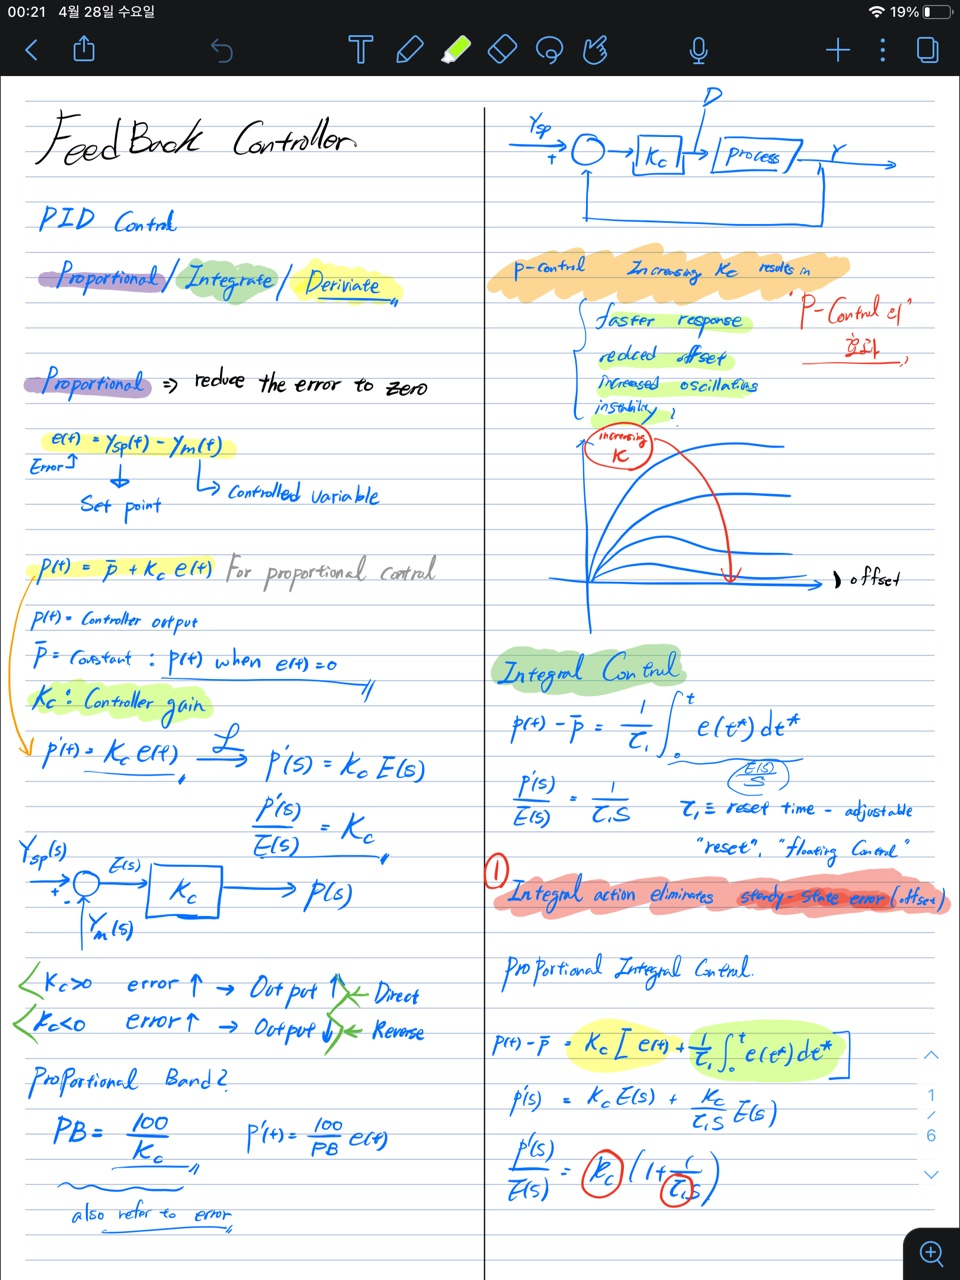 00:21 4월 28일 수요일
19%
FeedBack Controller
PID Control
Proportional / Integrate / Deriviate
Proportional => reduce the error to zero
e(t) = Ysp(t) - Ym(t)
Error
Set point
Controlled variable
p(t) = p̄ + Kc e(t) For proportional control
p(t) = Controller output
p̄ = constant : p(t) when e(t)=0
Kc : Controller gain
p'(t) = Kc e(t) ℒ→ p'(s) = Kc E(s)
p'(s)/E(s) = Kc
Ysp(s) E(s)
+ - Kc → p(s)
Ym(s)
Kc>0 error ↑ → Output ↑ ← Direct
Kc<0 error ↑ → Output ↓ ← Reverse
Proportional Band?
PB = 100/Kc p'(t) = 100/PB e(t)
also refer to error
D
Ysp + Kc process Y
p-control Increasing Kc results in
faster response
reduced offset
increased oscillations
instability?
"P-Control의"
효과
increasing
K
) offset
Integral Control
p(t) - p̄ = 1/τ₁ ∫₀ᵗ e(t*) dt*
E(s)/S
p'(s)/E(s) = 1/τ₁S τ₁ ≡ reset time - adjustable
"reset", "floating Control"
① Integral action eliminates stardy-state error (offset)
Proportional Integral Control.
p(t) - p̄ = Kc [ e(t) + 1/τ₁ ∫₀ᵗ e(t*) dt* ]
p'(s) = Kc E(s) + Kc/τ₁S E(s)
p'(s)/E(s) = Kc (1 + 1/τ₁S)
1
/
6